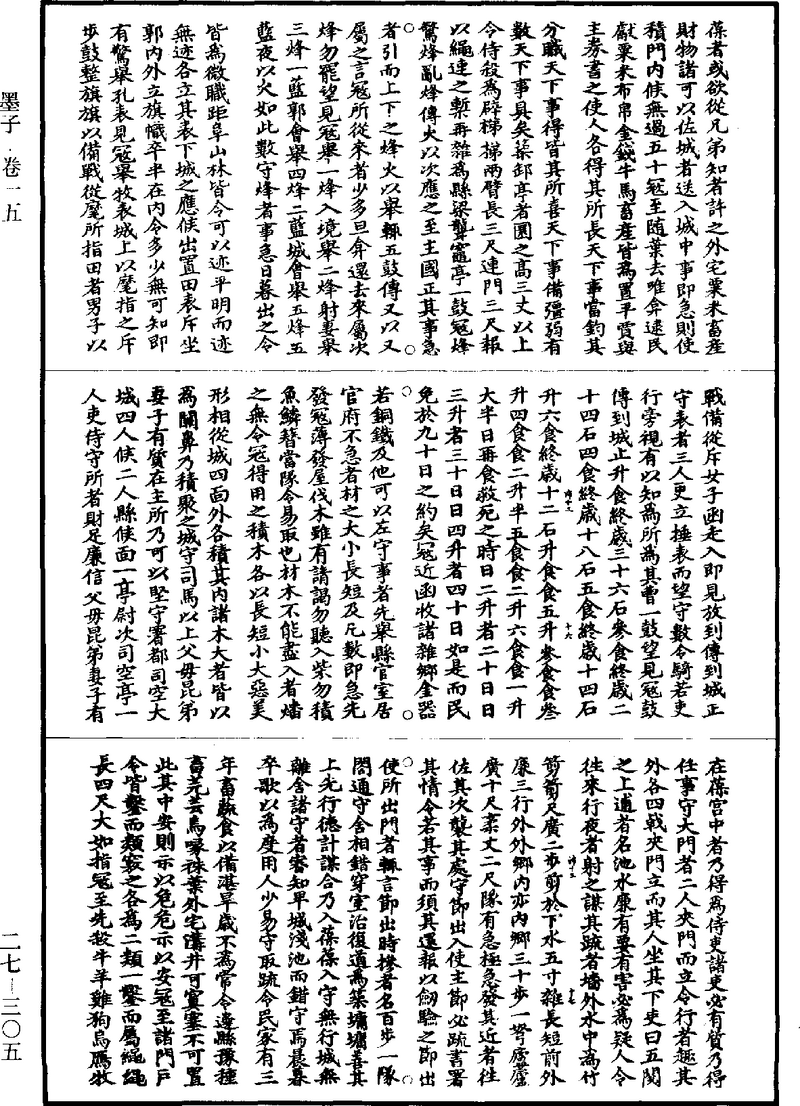 葆者或欲從兄弟知者許之外宅粟米畜産
財物諸可以佐城者送入城中事即急則使
積門内候無過五十寇至隨葉去唯弇逮民
獻粟米布帛金錢牛馬畜産皆為置平賈與
主券書之使人各得其所長天下事當鈞其
分職天下事得皆其所喜天下事備彊弱有
數天下事具矣築卸亭者圜之高三丈以上
令侍殺為辟梯梯兩臂長三尺連門三尺報
以繩連之塹再雜為縣梁聾竈亭一鼓寇烽
驚烽亂烽傳火以次應之至主國正其事急
者引而上下之烽火以舉輒五鼓傳又以又
屬之言寇所從來者少多旦弇還去來屬次
烽勿罷望見寇舉一烽入境舉二烽射妻舉
三烽一藍郭會舉四烽二藍城會舉五烽五
藍夜以火如此數守烽者事急日暮出之令
皆為微職距阜山林皆令可以迹平明而迹
無迹各立其表下城之應候出置田表斥坐
郭内外立旗幟卒半在内令多少無可知即
有驚舉孔表見寇舉牧表城上以麾指之斥
步鼓整旗旗以備戰從麾所指田者男子以
戰備從斥女子函走入即見放到傳到城正
守表者三人更立捶表而望守數令騎若吏
行旁視有以知為所為其曹一鼓望見寇鼓
傳到城止升食終歲三十六石參食終歲二
十四石四食終歲十八石五食終歲十四石
升六食終歲十二石升食食五升參食食參
升四食食二升半五食食二升六食食一升
大半日再食救死之時日二升者二十日日
三升者三十日日四升者四十日如是而民
免於九十日之約矣寇近函收諸雜鄉金器
若銅鐵及他可以左守事者先舉縣官室居
官府不急者材之大小長短及凡數即急先
發寇薄發屋伐木雖有請謁勿聽入柴勿積
魚鱗簪當隊令易取也材木不能盡入者燔
之無令寇得用之積木各以長短小大惡美
形相從城四面外各積其内諸木大者皆以
為關鼻乃積聚之城守司馬以上父母昆弟
妻子有質在主所乃可以堅守署都司空大
城四人候二人縣候面一亭尉次司空亭一
人吏侍守所者財足廉信父母昆弟妻子有
在葆宮中者乃得為侍吏諸吏必有質乃得
任事守大門者二人夾門而立令行者趣其
外各四戟夾門立而其人坐其下吏日五閱
之上逋者名池水廉有要有害必為疑人令
往來行夜者射之謀其疏者墻外水中為竹
箭箭尺廣二步箭於下水五寸雜長短前外
廉三行外外鄉内亦内鄉三十步一弩廬廬
廣十尺袤丈二尺隊有急極急發其近者往
佐其次襲其處守節出入使主節必疏書署
其情令若其事而須其還報以劒驗之節出
使所出門者輒言節出時摻者名百步一隊
閤通守舍相錯穿室治復道為築墉墉善其
上先行德計謀合乃入葆葆入守無行城無
離舍諸守者審知卑城淺池而錯守焉晨暮
卒歌以為度用人少易守取疏令民家有三
年畜蔬食以備湛旱歲不為常令邊縣豫種
畜芫芸烏喙袾葉外宅溝井可窴塞不可置
此其中安則示以危危示以安寇至諸門戶
令皆鑿而類竅之各為二類一鑿而屬繩繩
長四尺大如指寇至先殺牛羊雞狗烏鴈收
墨子·卷一五
二七—三〇五